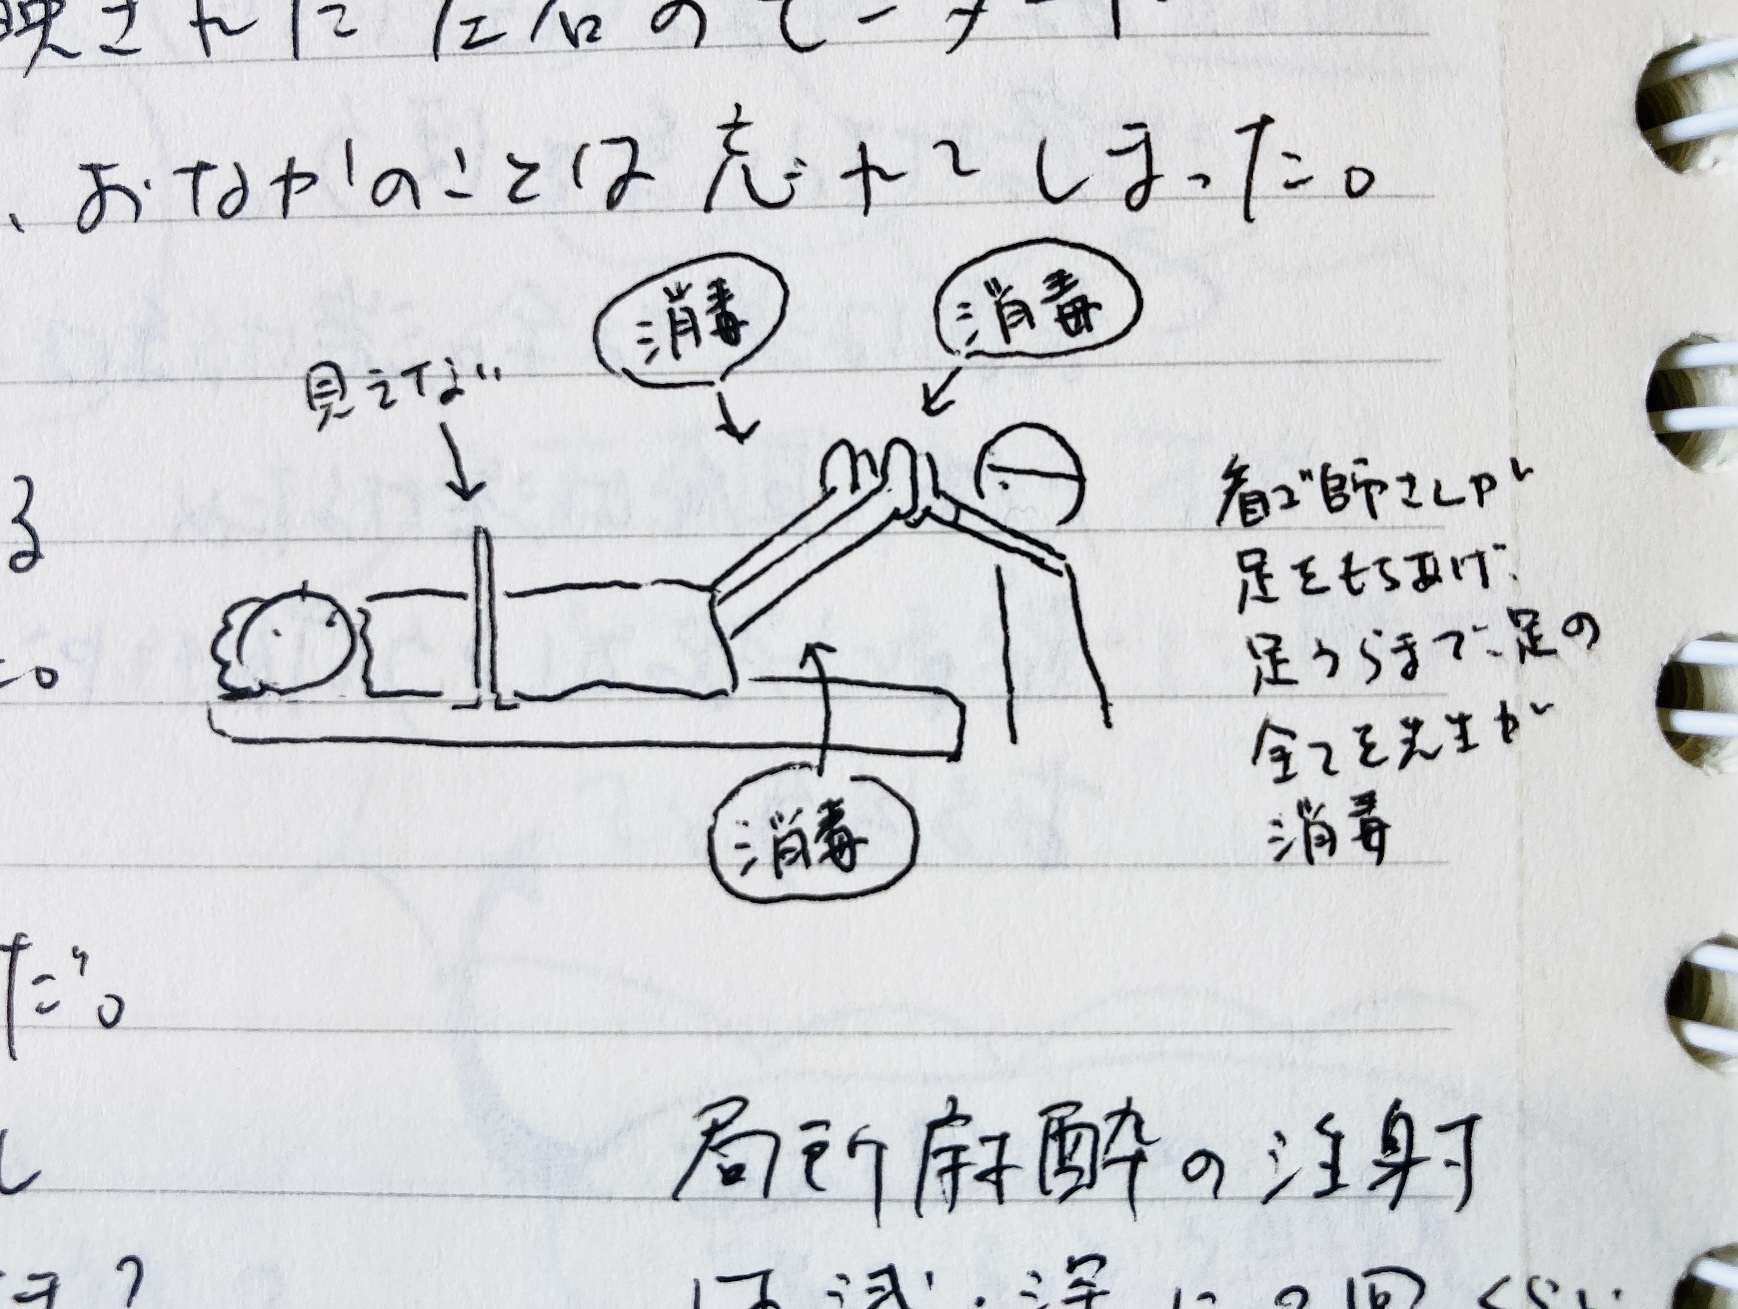 映された左右のモニター
、おなかのことは忘れてしまった。
消毒
消毒
見えない
看ご師さんが
足をもちあげ
足うらまで足の
全てを先生が
消毒
る
た。
消毒
だ。
し
局所麻酔の注射
ま?
は
に2回くらい